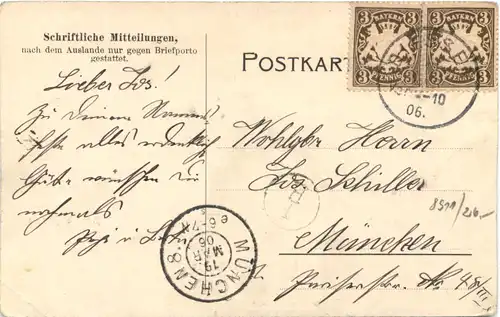 Schriftliche Mitteilungen,
nach dem Auslande nur gegen Briefporto
gestattet.
Lieber Jos!
Zu Deinem Namens
feste alles erdenklich
Gute wünschen dir
nochmals
POSTKAR
3 BAYERN 3
3 PFENNIG 3
3 BAYERN 3
3 PFENNIG 3
-10
06.
Wohlgeb. Herrn
Jos. Schiller
München
No. 48/III
8521/26-
MÜNCHEN 8
19
MAR
06